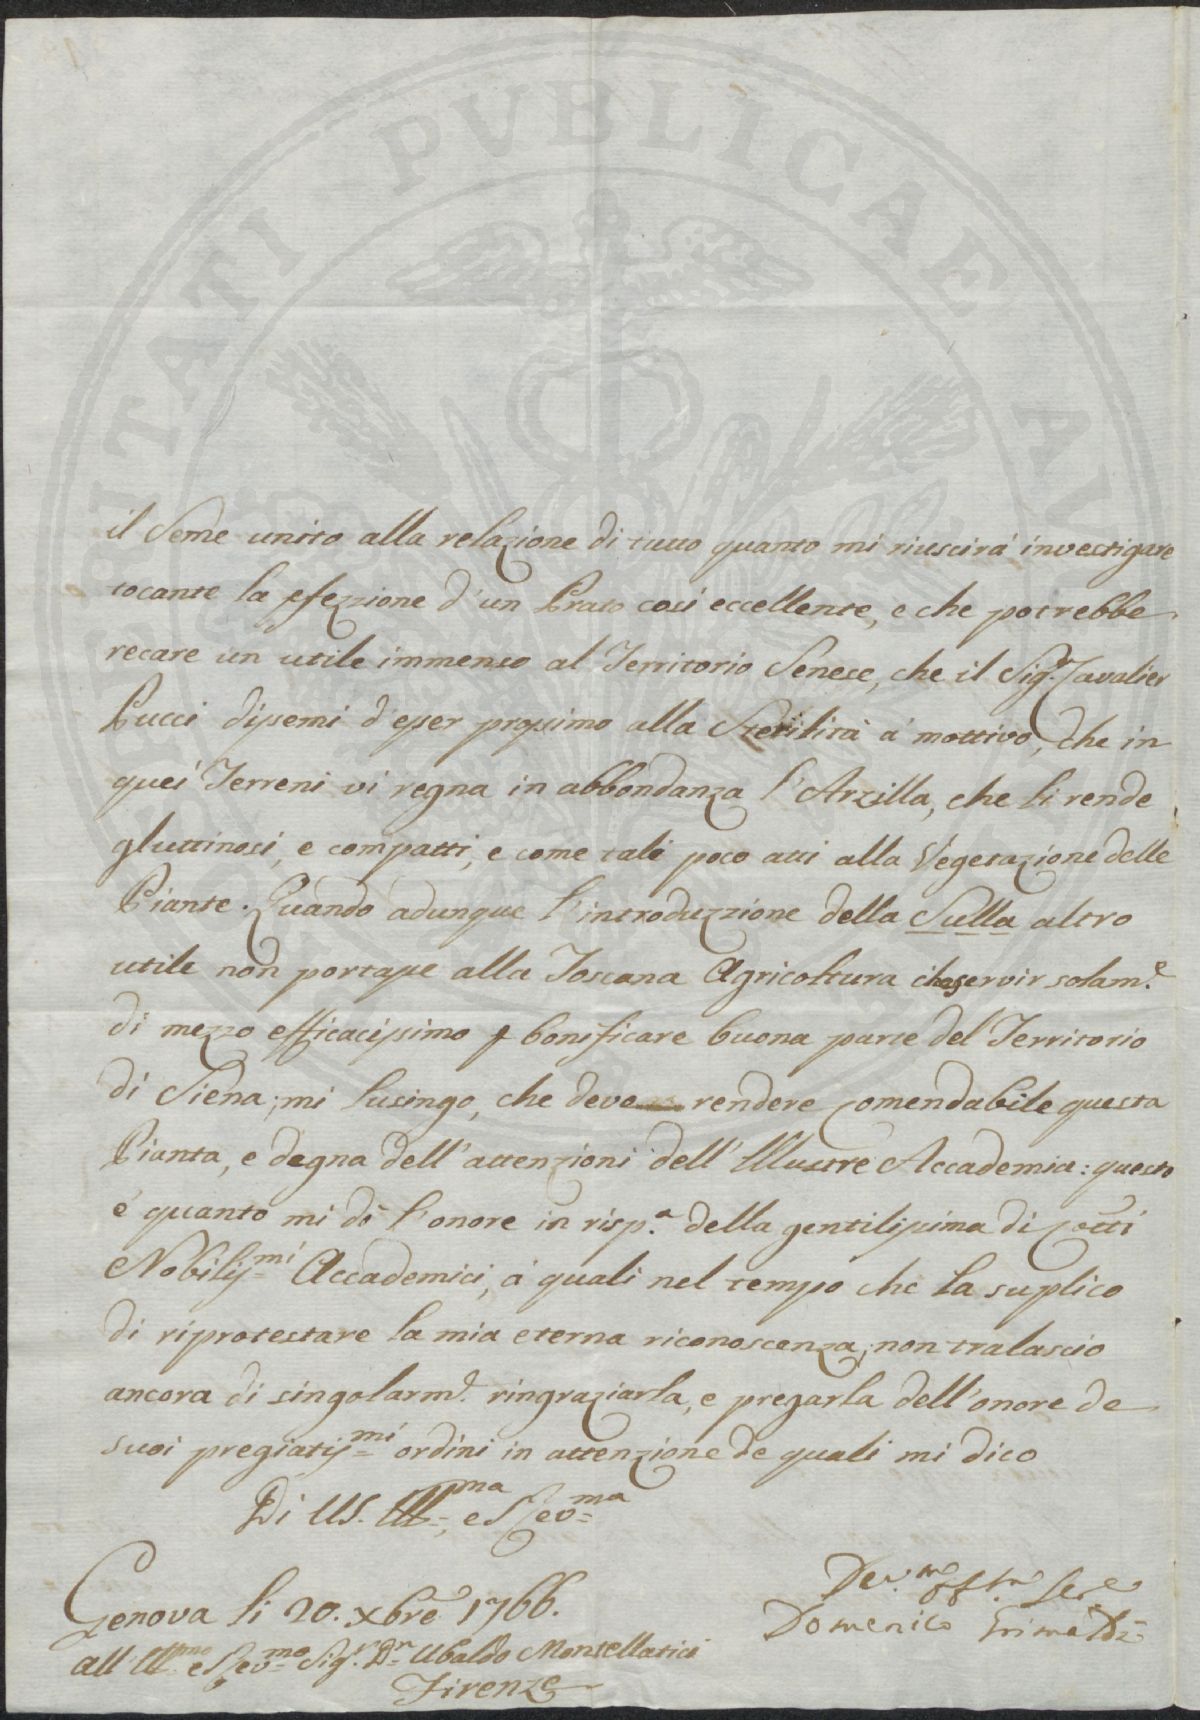 PROSPERITATI PUBLICAE AU
il Seme unito alla relazione di tutto quanto mi riuscirá investigare
tocante la pfezzione d'un Prato cosí eccellente, e che potrebbe
recare un utile immenso al Territorio Senese, che il Sig.r Cavalier
Pucci dissemi d'esser prossimo alla Sterilitá á mottivo, che in
quei Terreni vi regna in abbondanza l'Arzilla, che li rende
gluttinosi, e compatti, e come tali poco atti alla Vegetazione delle
Piante. Quando adunque l'introduzzione della Sulla altro
utile non portasse alla Toscana Agricoltura che servir solam.e
di mezzo efficacissimo p bonificare buona parte del Territorio
di Siena; mi lusingo, che deve rendere comendabile questa
Pianta, e degna dell'attenzioni dell'Illustre Accademia: questo
é quanto mi dó l'onore in risp.a della gentilissima di cotti
Nobiliss.mi Accademici, á quali nel tempo che la suplico
di riprotestare la mia eterna riconoscenza; non tralascio
ancora di singolarm.e ringraziarla, e pregarla dell'onore de
suoi pregiatiss.mi ordini in attenzione de quali mi dico
Di VS. Ill.ma, e Rev.ma
Genova li 20. xbre 1766.
Dev.mo Obb.mo Ser.e
Domenico Grimaldi
all'Ill.mo e Rev.mo Sig.r Dn Ubaldo Montellatici
Firenze